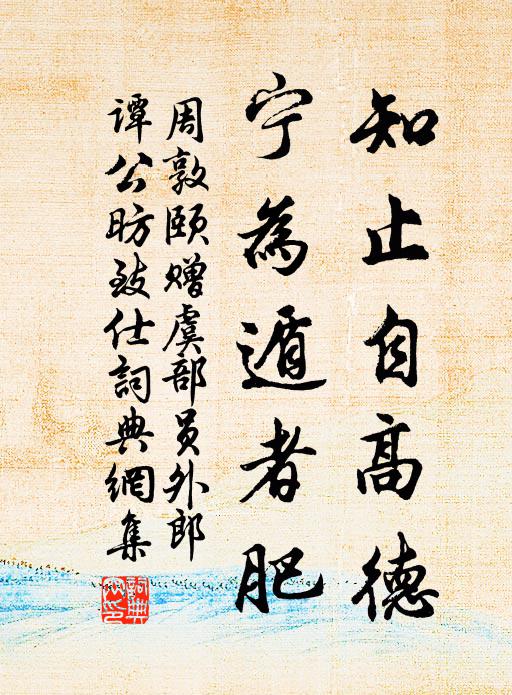 知止自高德
宁為遁者肥
周敦颐赠虞部员外郎
谭公昉致仕詞典網集